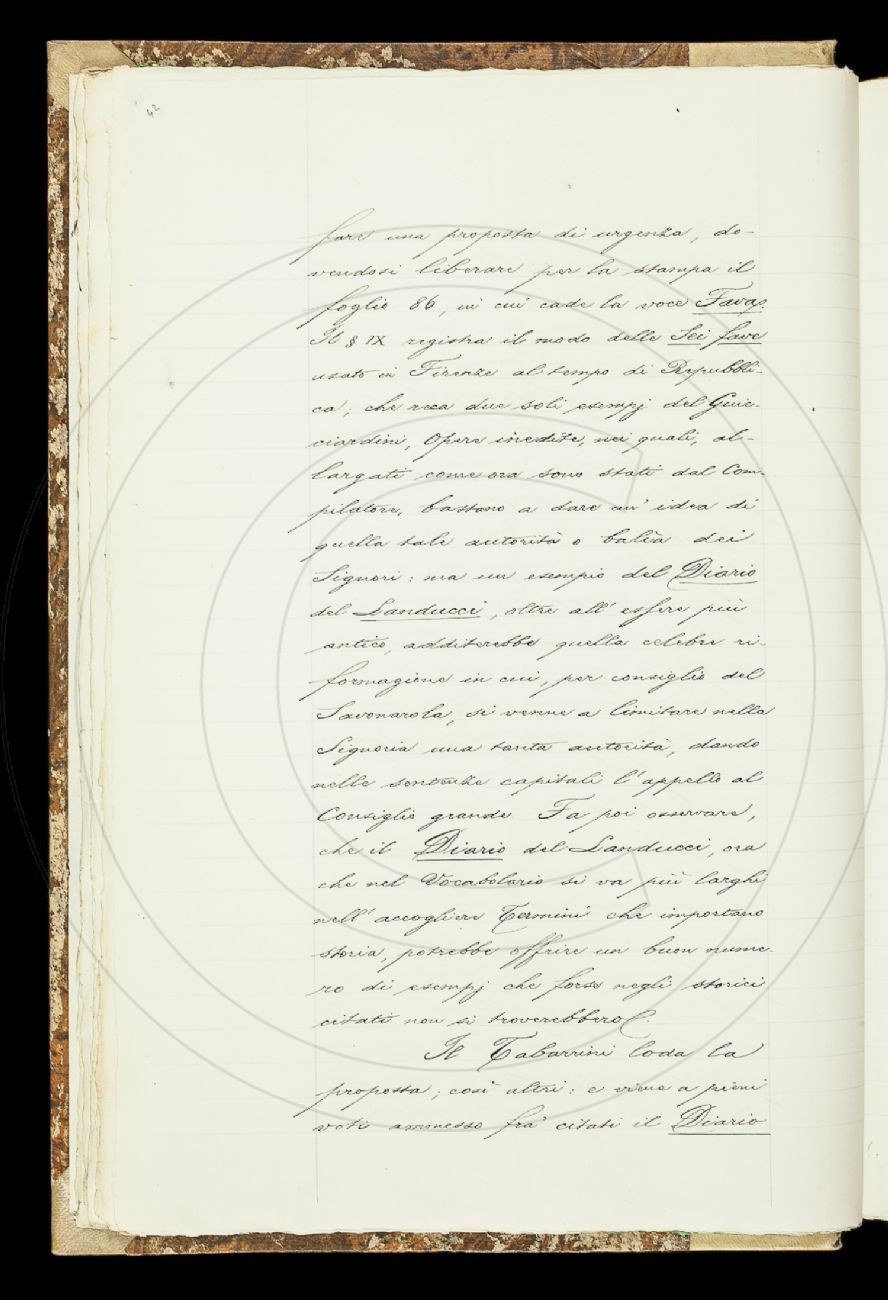 42
fare una proposta di urgenza, do-
vendosi liberare per la stampa il
foglio 86, in cui cade la voce Fava.
Il § IX registra il modo delle Sei fave
usato in Firenze al tempo di Repubbli-
ca; che reca due soli esempj del Guic-
ciardini, Opere inedite, nei quali, al-
largati come ora sono stati dal Com-
pilatore, bastano a dare un' idea di
quella tale autorità o balìa dei
Signori: ma un esempio del Diario
del Landucci, oltre all' essere più
antico, additerebbe quella celebre ri-
formagione in cui, per consiglio del
Savonarola, si venne a limitare nella
Signoria una tanta autorità, dando
nelle sentenze capitali l' appello al
Consiglio grande. Fa poi osservare,
che il Diario del Landucci, ora
che nel Vocabolario si va più larghi
nell' accogliere Termini che importano
storia, potrebbe offrire un buon nume-
ro di esempj che forse negli storici
citati non si troverebbero.
Il Tabarrini loda la
proposta; così altri: e viene a pieni
voti ammesso fra' citati il Diario